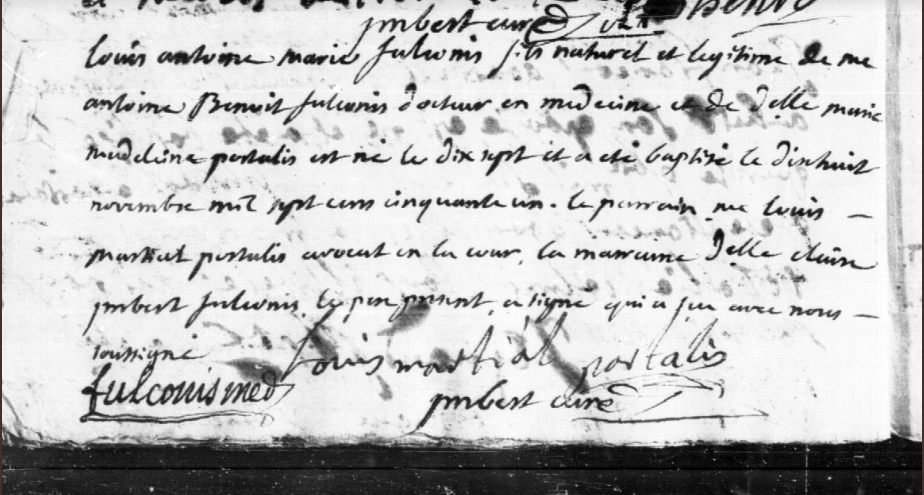 imbert curé
louis antoine marie fulconis fils naturel et legitime de me
antoine Benoit fulconis docteur en medecine et de delle marie
madeleine portalis est né le dix sept et a eté baptisé le dixhuit
novembre mil sept cens cinquante un. le parrain me louis
martial portalis avocat en la cour, la marraine delle claire
imbert fulconis, le pere present, a signé qui a sçu avec nous
soussigné
louis martial portalis
fulconis med
imbert curé